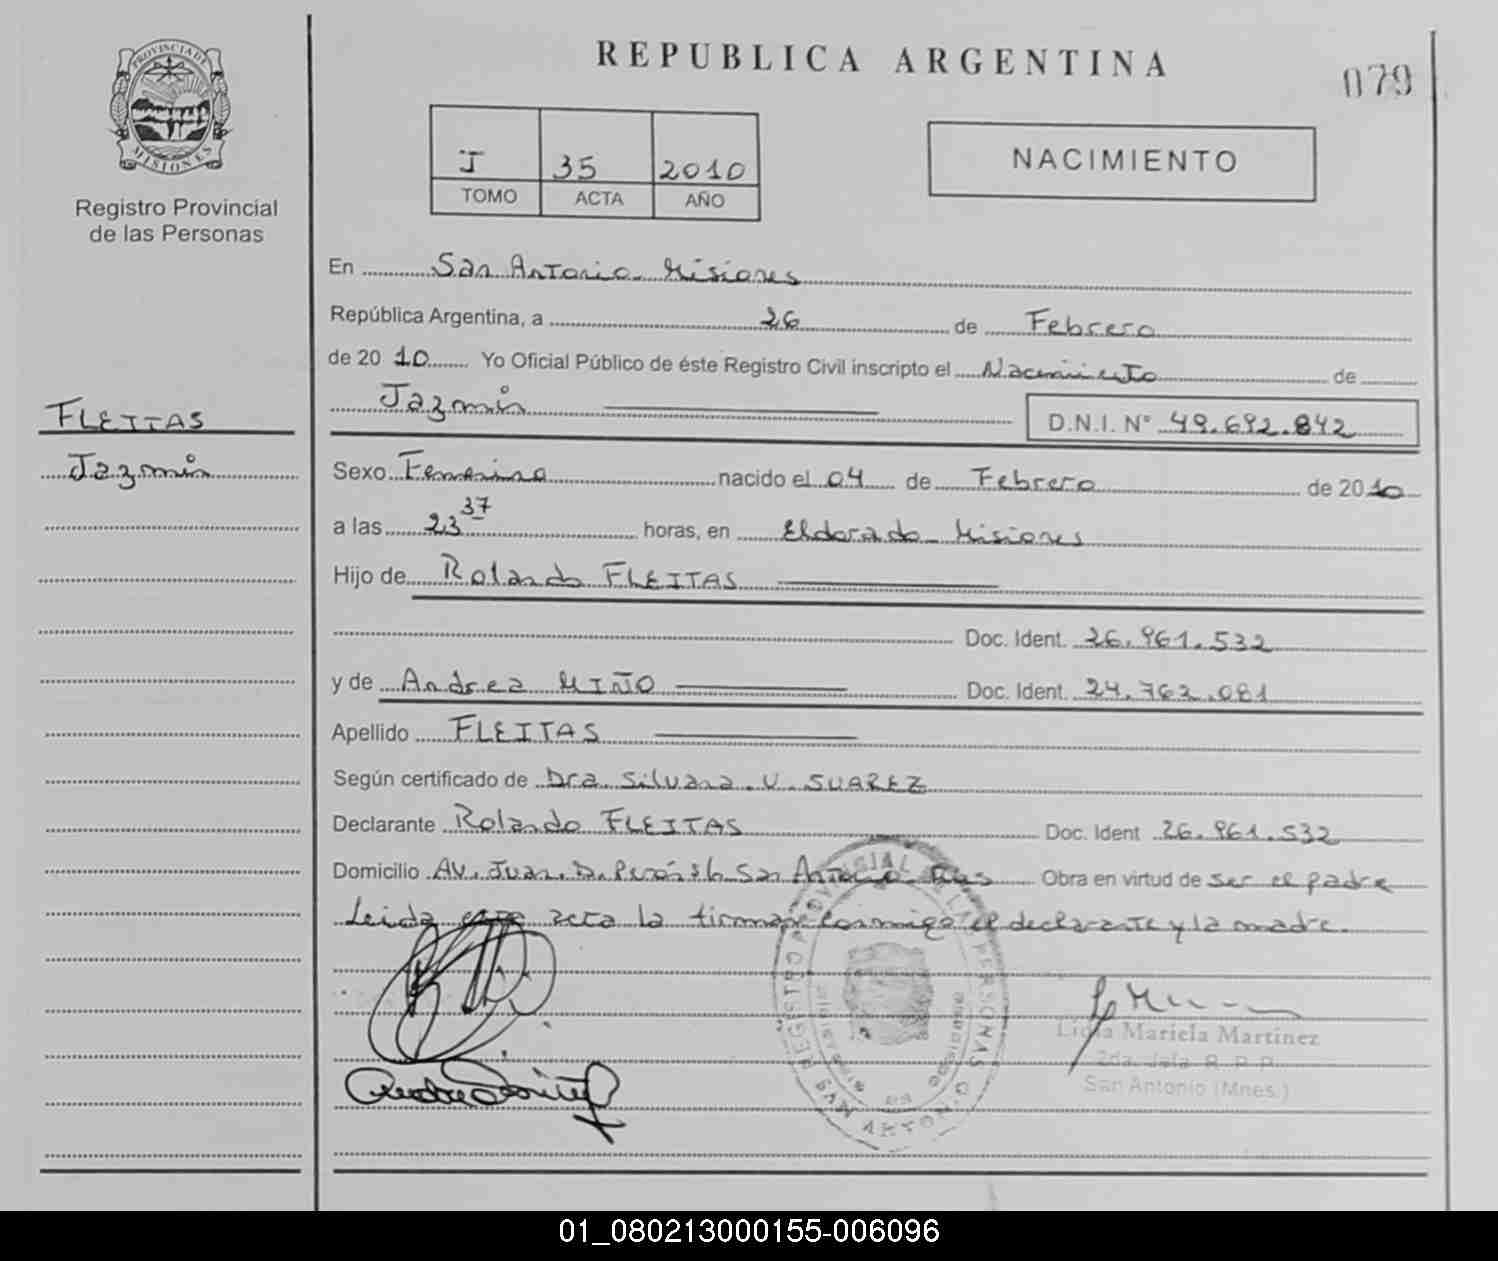 PROVINCIA DE
MISIONES
Registro Provincial
de las Personas
FLEITAS
Jazmín
REPUBLICA ARGENTINA
079
J 35 2010
TOMO ACTA AÑO
NACIMIENTO
En San Antonio Misiones
República Argentina, a 26 de Febrero
de 2010 Yo Oficial Público de éste Registro Civil inscripto el Nacimiento de
Jazmín D.N.I. N° 49.692.842
Sexo Femenino nacido el 04 de Febrero de 2010
a las 23 37 horas, en Eldorado Misiones
Hijo de Rolando FLEITAS
Doc. Ident. 26.961.532
y de Andrea MIÑO Doc. Ident. 24.762.081
Apellido FLEITAS
Según certificado de Dra Silvana. V. SUAREZ
Declarante Rolando FLEITAS Doc. Ident 26.961.532
Domicilio AV. Juan. D. Perón San Antonio Obra en virtud de ser el padre
Leida esta acta la firman conmigo el declarante y la madre.
REGISTRO PROVINCIAL DE LAS PERSONAS
Lidia Mariela Martinez
2da. Jefa R. P. P.
San Antonio (Mnes.)
01_080213000155-006096